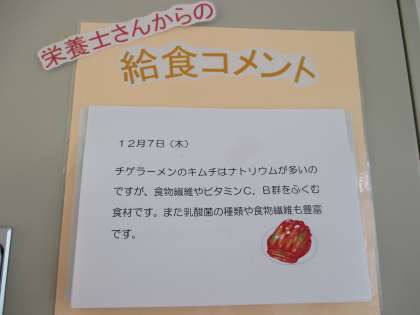 栄養士さんからの
給食コメント
12月7日（木）
チゲラーメンのキムチはナトリウムが多いの
ですが、食物繊維やビタミンC、B群をふくむ
食材です。また乳酸菌の種類や食物繊維も豊富
です。